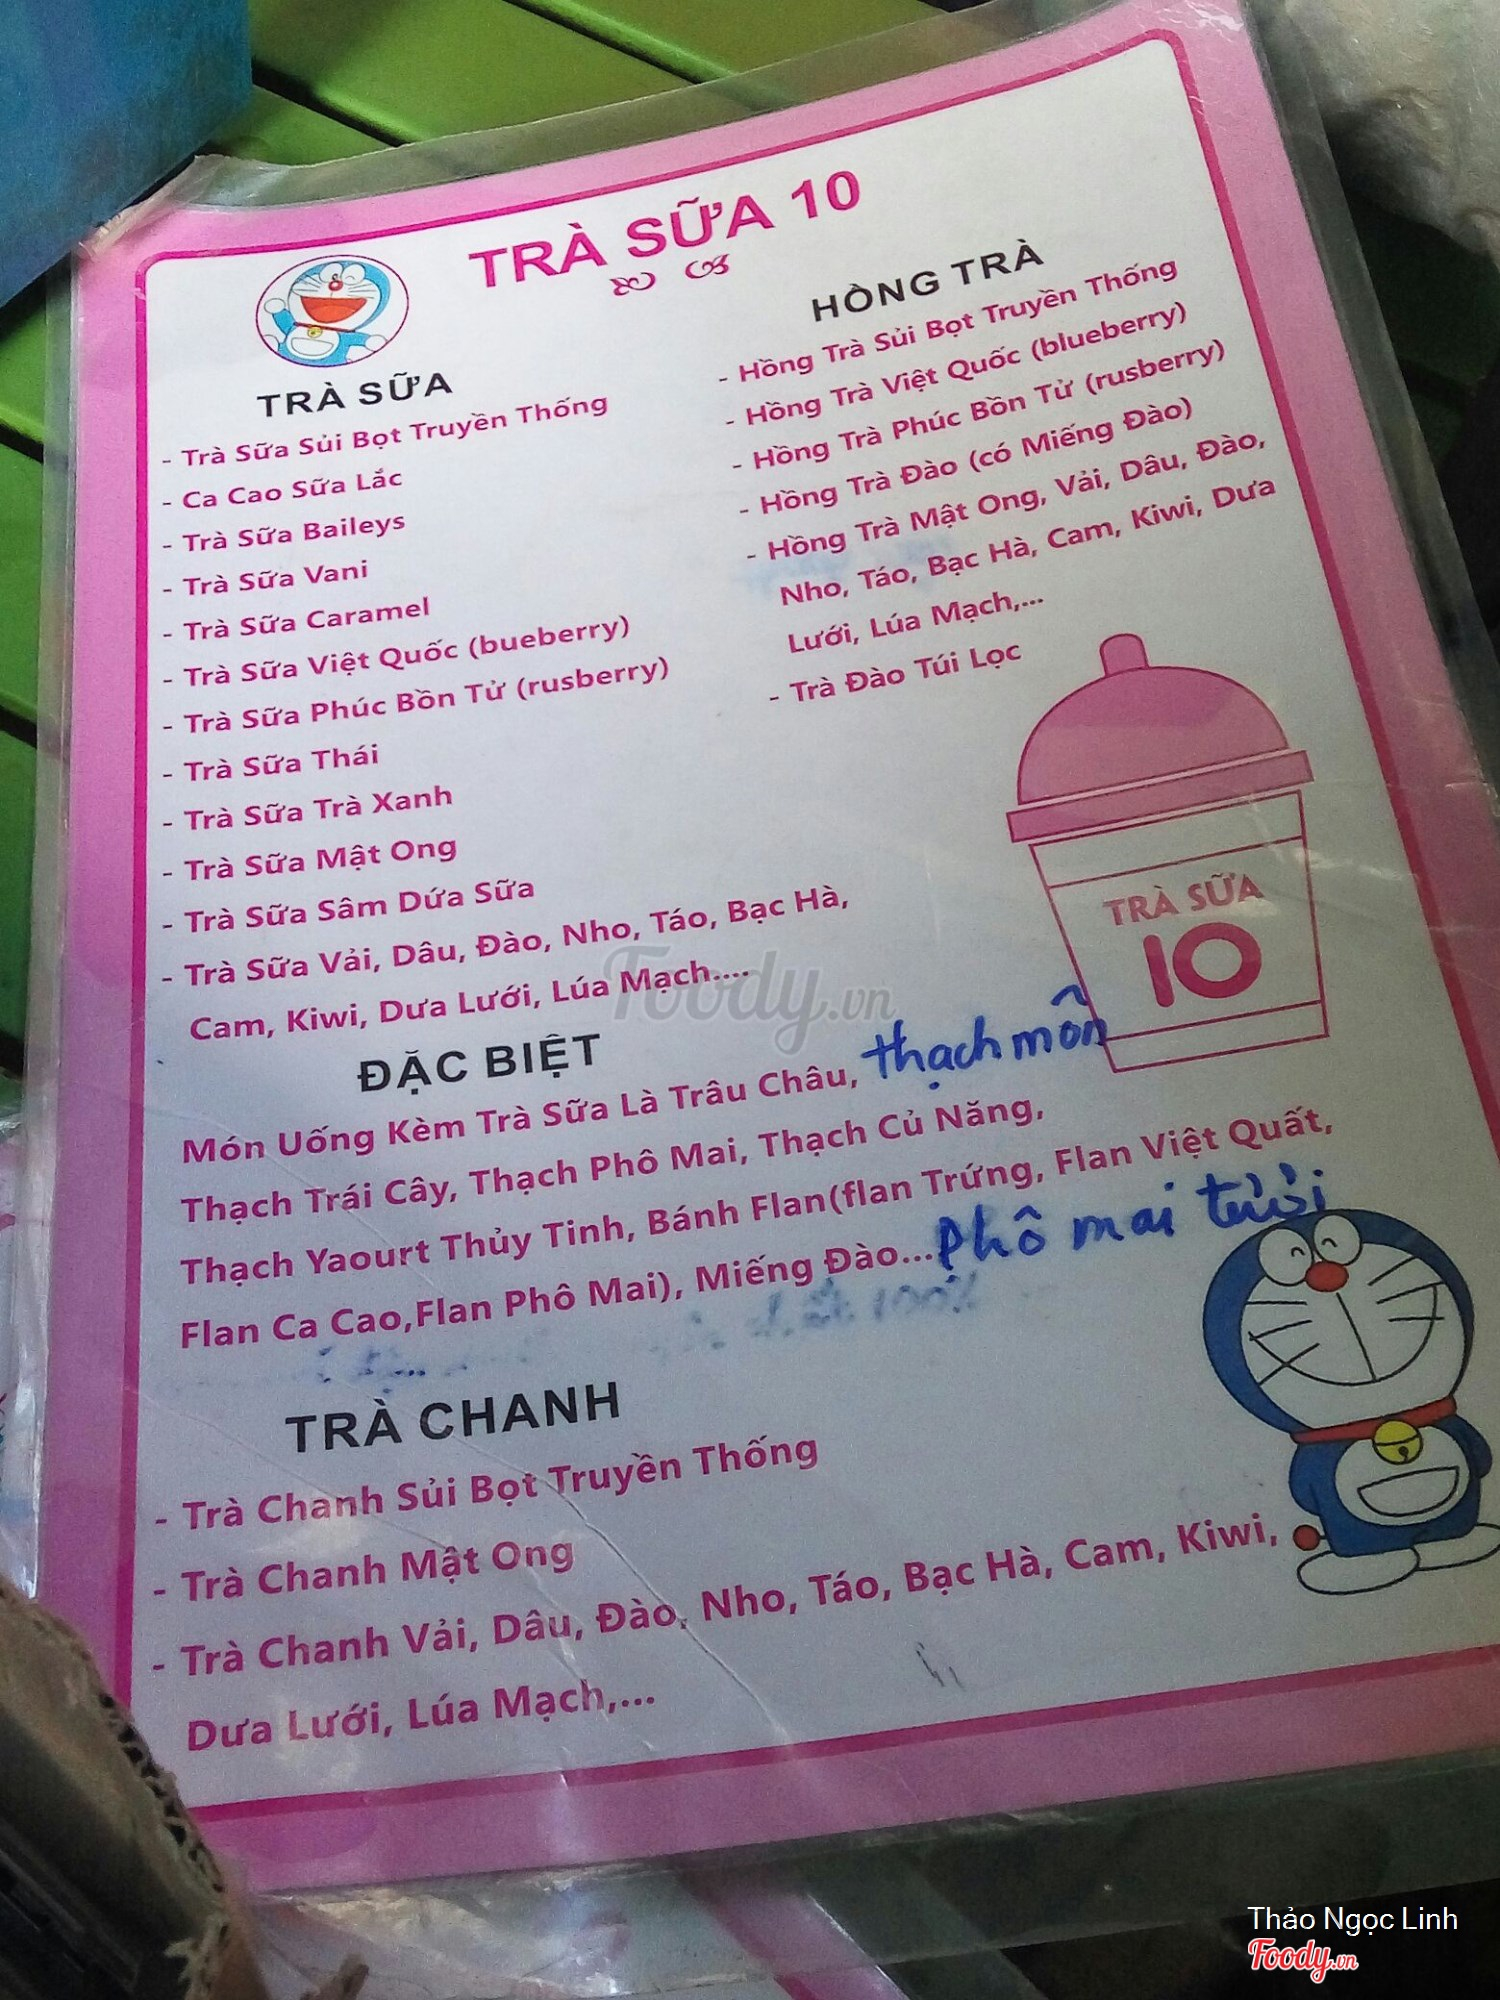 TRÀ SỮA 10
TRÀ SỮA
- Trà Sữa Sủi Bọt Truyền Thống
- Ca Cao Sữa Lắc
- Trà Sữa Baileys
- Trà Sữa Vani
- Trà Sữa Caramel
- Trà Sữa Việt Quốc (bueberry)
- Trà Sữa Phúc Bồn Tử (rusberry)
- Trà Sữa Thái
- Trà Sữa Trà Xanh
- Trà Sữa Mật Ong
- Trà Sữa Sâm Dứa Sữa
- Trà Sữa Vải, Dâu, Đào, Nho, Táo, Bạc Hà,
Cam, Kiwi, Dưa Lưới, Lúa Mạch....
HÒNG TRÀ
- Hồng Trà Sủi Bọt Truyền Thống
- Hồng Trà Việt Quốc (blueberry)
- Hồng Trà Phúc Bồn Tử (rusberry)
- Hồng Trà Đào (có Miếng Đào)
- Hồng Trà Mật Ong, Vải, Dâu, Đào,
Nho, Táo, Bạc Hà, Cam, Kiwi, Dưa
Lưới, Lúa Mạch,...
- Trà Đào Túi Lọc
TRÀ SỮA
10
Foody.vn
ĐẶC BIỆT
Món Uống Kèm Trà Sữa Là Trâu Châu, thạch môn
Thạch Trái Cây, Thạch Phô Mai, Thạch Củ Năng,
Thạch Yaourt Thủy Tinh, Bánh Flan(flan Trứng, Flan Việt Quất,
Flan Ca Cao,Flan Phô Mai), Miếng Đào... phô mai tươi
100%
TRÀ CHANH
- Trà Chanh Sủi Bọt Truyền Thống
- Trà Chanh Mật Ong
- Trà Chanh Vải, Dâu, Đào, Nho, Táo, Bạc Hà, Cam, Kiwi,
Dưa Lưới, Lúa Mạch,...
Thảo Ngọc Linh
Foody.vn